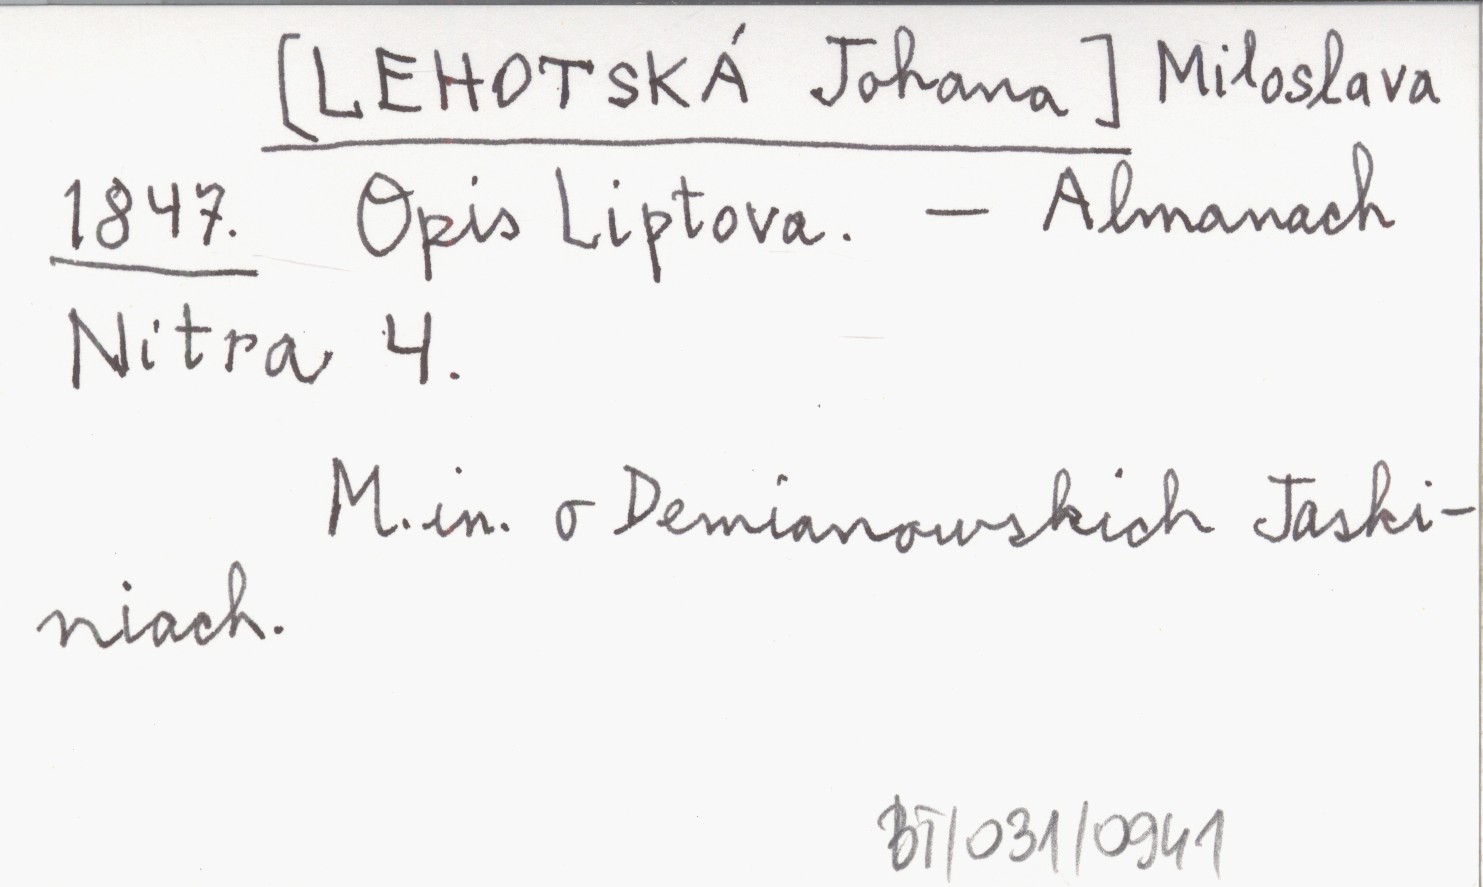 [LEHOTSKÁ Johana] Miloslava
1847. Opis Liptova. — Almanach
Nitra 4.
M.in. o Demianowskich Jaski-
niach.
BT/031/0941